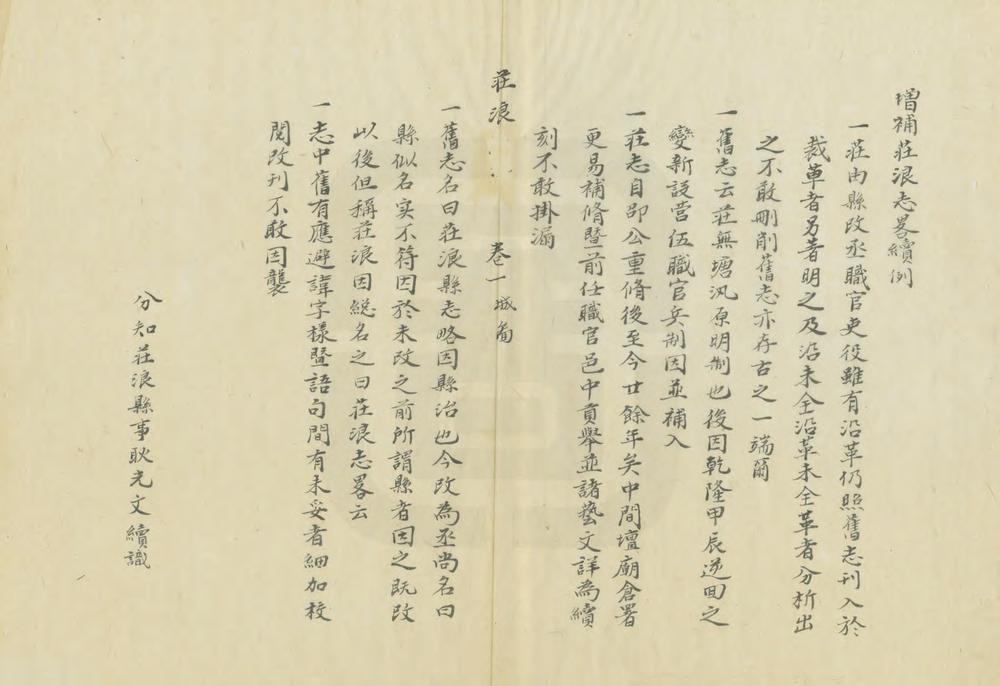 增補莊浪志畧續例
一莊由縣改丞職官吏役雖有沿革仍照舊志刊入於
裁革者另著明之及沿未全沿革未全革者分析出
之不敢刪削舊志亦存古之一端爾
一舊志云莊無塘汛原明制也後因乾隆甲辰逆回之
變新設营伍職官兵制因並補入
一莊志自邵公重脩後至今廿餘年矣中間壇廟倉署
更易補脩暨前任職官邑中貢舉並諸藝文詳為續
刻不敢掛漏
莊浪 卷一 城啚
一舊志名曰莊浪縣志略因縣治也今改為丞尚名曰
縣似名实不符因於未改之前所謂縣者因之既改
以後但稱莊浪因總名之曰莊浪志畧云
一志中舊有應避諱字樣暨語句間有未妥者細加校
閱改刊不敢因襲
分知莊浪縣事耿光文續識